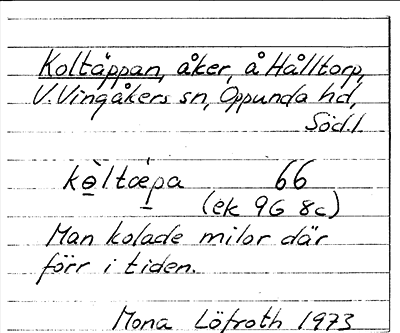 Koltäppan, åker, å Hålltorp,
V. Vingåkers sn, Oppunda hd,
Söd. l.
kɵ̀ltæ̀pa 66
(ek 9G 8c)
Man kolade milor där
förr i tiden.
Mona Löfroth 1973